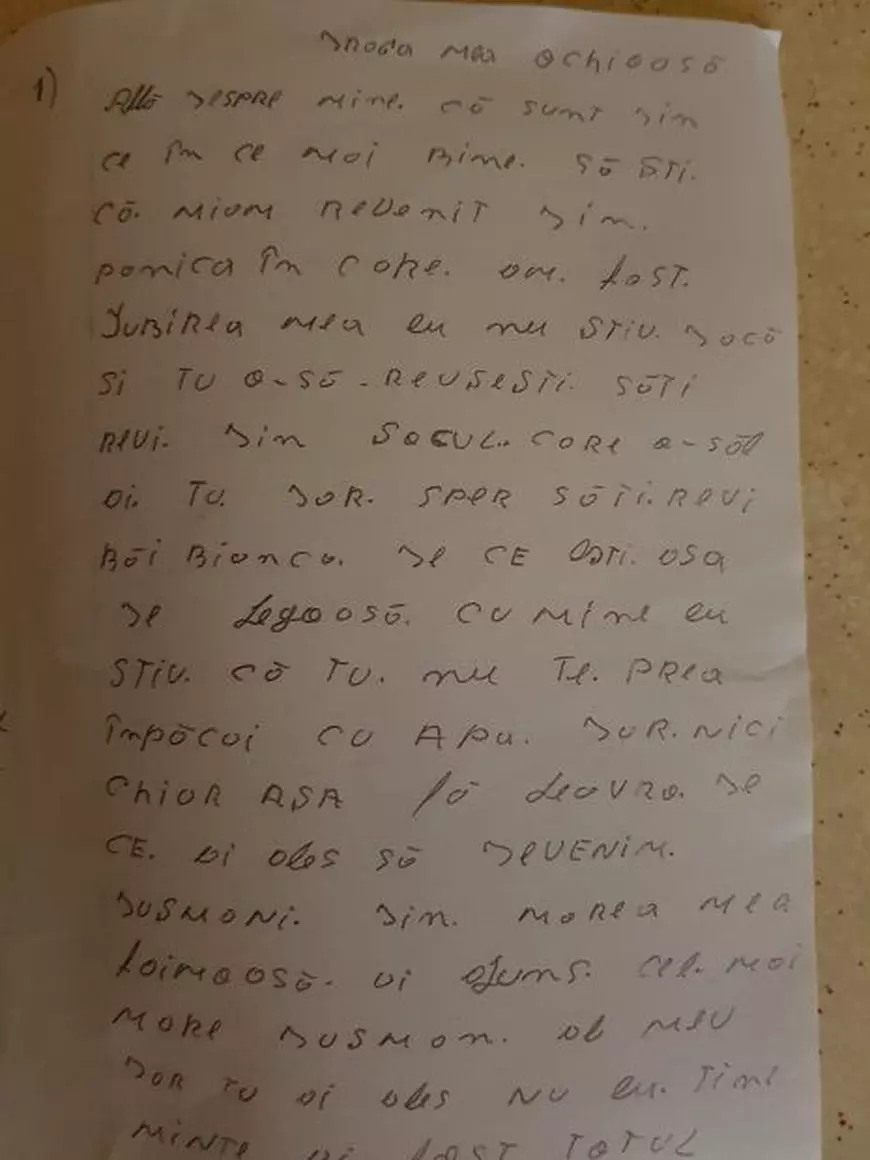 Draga mea ochioasă
1)
Află despre mine. că sunt din
ce în ce mai bine. să sti.
că. miam revenit din.
panica în care. am. fost.
Iubirea mea eu nu stiu. dacă
si tu o-să-reusesti. săti
revi. din socul. care o-săl
ai. tu. dar. sper săti. revi
băi Bianca. de ce esti. asa
de fegoasă. cu mine eu
stiu. că tu. nu te. prea
împăcai cu apa. dar. nici
chiar asa fă leavra. de
ce. ai ales să devenim.
dusmani. din. marea mea
faimoasă. ai ajuns. cel. mai
mare dusman. al meu
dar tu ai ales nu eu. tine
minte ai fost totul